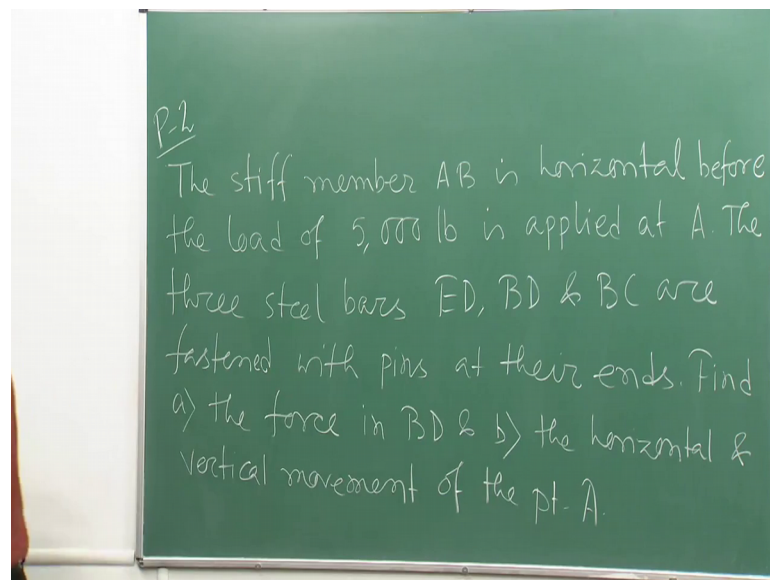 P-2
The stiff member AB is horizontal before
the load of 5,000 lb is applied at A. The
three steel bars ED, BD & BC are
fastened with pins at their ends. Find
a) the force in BD & b) the horizontal &
vertical movement of the pt. A.